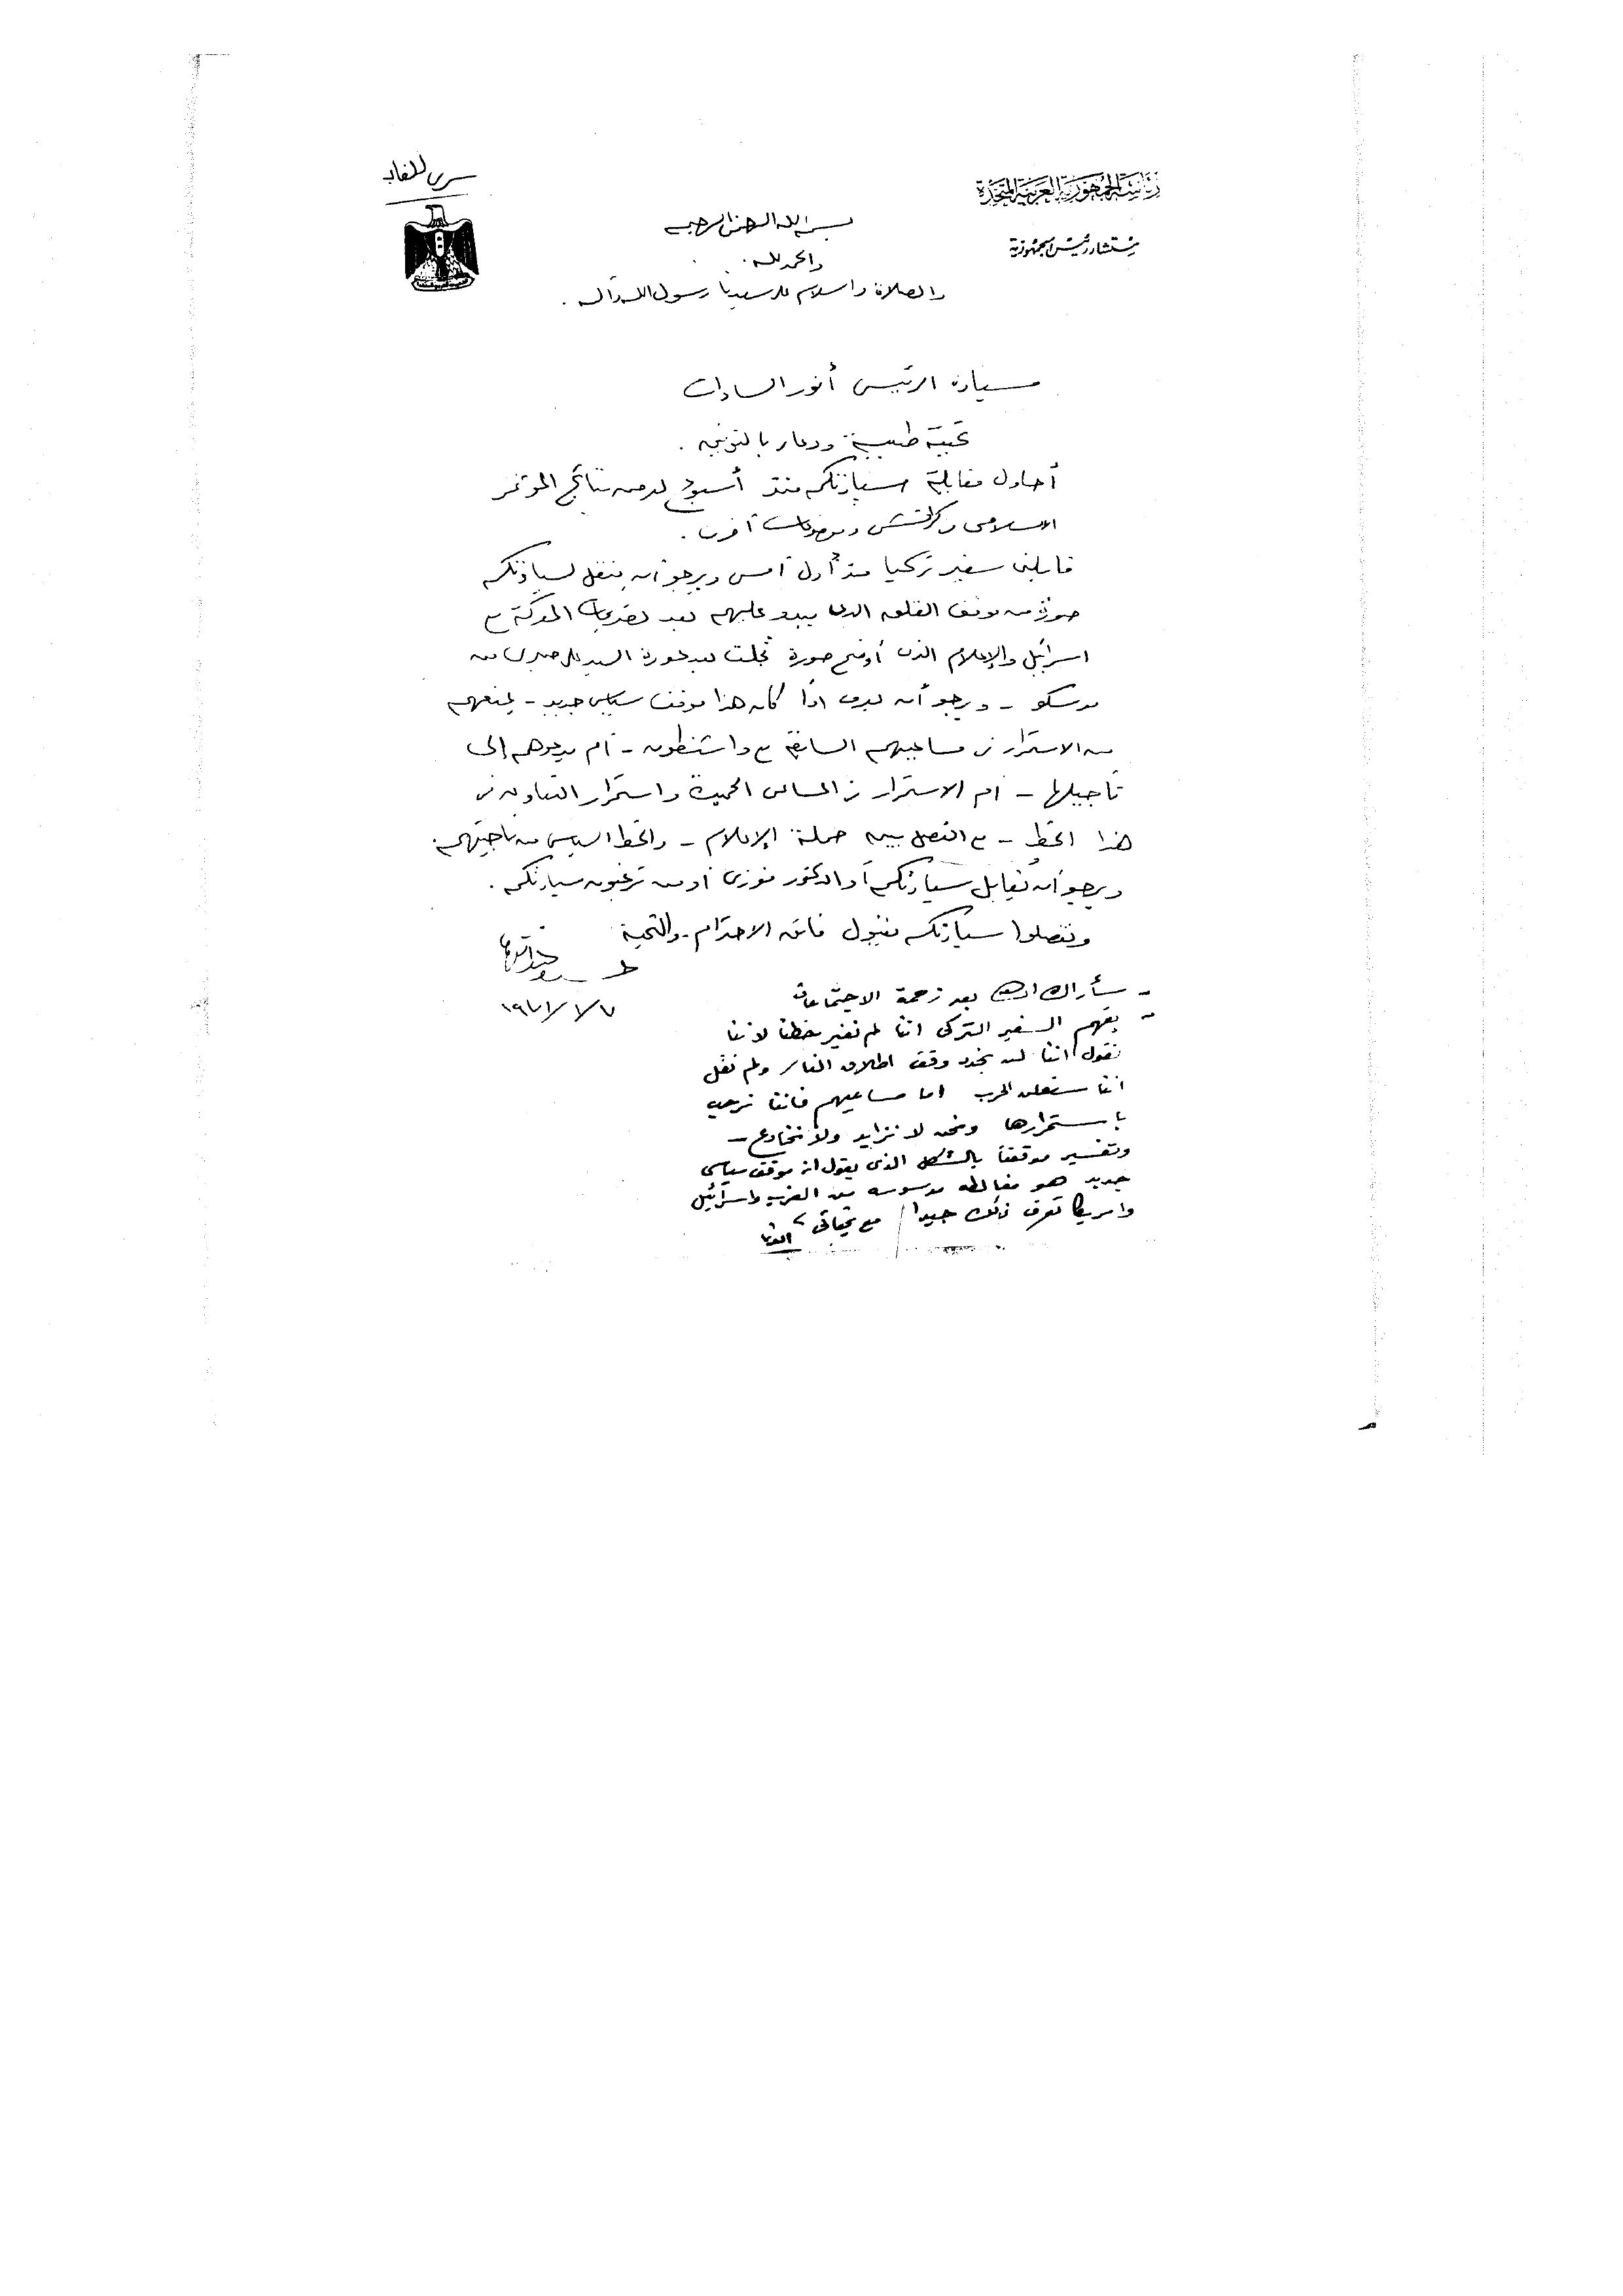 سرى للغاية
رئاسة الجمهورية العربية المتحدة
مستشار رئيس الجمهورية
بسم الله الرحمن الرحيم
والحمد لله .
والصلاة والسلام على سيدنا رسول الله وآله .
سيادة الرئيس أنور السادات
تحية طيبة ودعاء بالتوفيق .
أحاول مقابلة سيادتكم منذ أسبوع لعرض نتائج المؤتمر
الاسلامى وموضوعات أخرى .
قابلنى سفير تركيا منذ أول أمس ويرجو أن ينقل لسيادتكم
صورة من موقف القلق الذى يبدو عليهم بعد تصريحات المعركة مع
اسرائيل والإعلام الذى أوضح صورة تجلت بعد عودة السيد على صبرى من
موسكو - ويرجو أن يعرف اذا كان هذا موقف سياسى جديد - يمنعهم
من الاستمرار فى مساعيهم السابقة مع واشنطون - أم يدعوهم إلى
تأجيلها - أم الاستمرار فى المساعى الحميدة واستمرار التعاون فى
هذا الخط - مع الفصل بين حملة الإعلام - والخط السياسى من ناحيتهم .
ويرجو أن يقابل سيادتكم أو الدكتور فوزى أو من ترغبون سيادتكم .
وتفضلوا سيادتكم بقبول فائق الاحترام - والتحية
١٩٧١/١/٧
- سأراك ان شاء الله بعد زحمة الاجتماعات
- يفهم السفير التركى اننا لم نغير خطنا لاننا
نقول اننا لن نجدد وقف اطلاق النار ولم نقل
اننا سنعلن الحرب اما مساعيهم فاننا نرحب
باستمرارها ونحن لا نزايد ولا نخادع -
وتفسير موقفنا بالشكل الذى يقول انه موقف سياسى
جديد هو مغالطه مدسوسه من الغرب واسرائيل
وامريكا تعرف ذلك جيدا / مع تحياتى ،
أنور